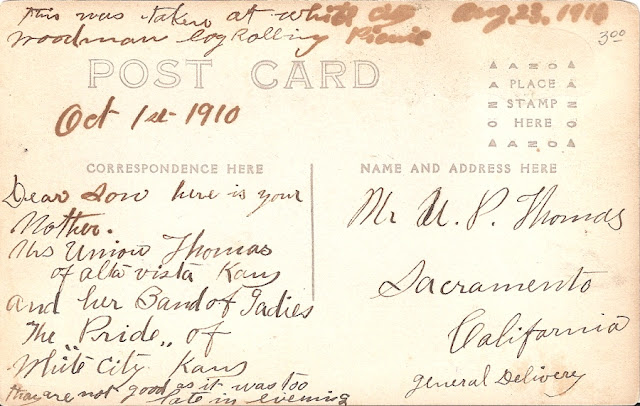 This was taken at White City Aug. 23. 1910
Woodman Log Rolling Picnic
3.00
POST CARD
Oct 1st 1910
AZO
PLACE
STAMP
HERE
AZO
CORRESPONDENCE HERE
Dear Son here is your
Mother.
Mrs Union Thomas
of alta vista Kans
and her Band of Ladies
The "Pride" of
White City Kans
they are not good as it was too
late in evening
NAME AND ADDRESS HERE
Mr U. P. Thomas
Sacramento
California
general Delivery